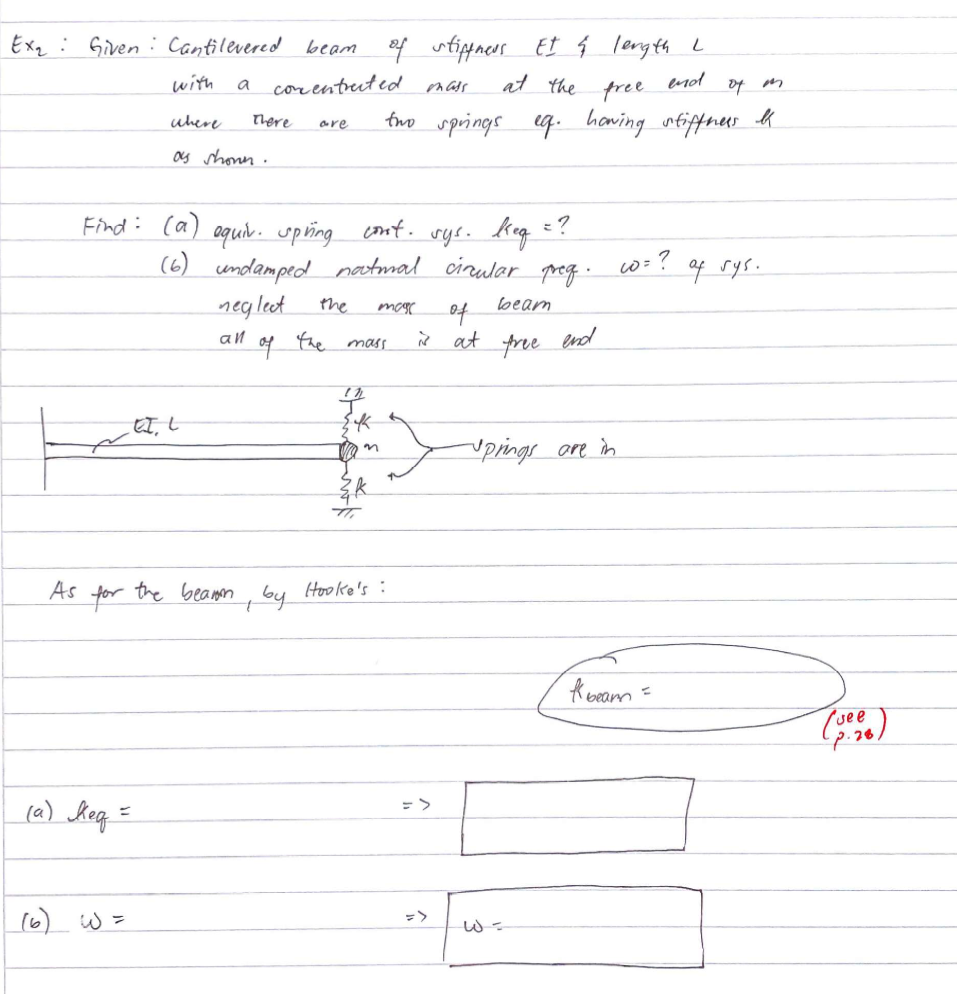 Ex2 : Given : Cantilevered beam of stiffness EI & length L
with a concentrated mass at the free end of m
where there are two springs eq. having stiffness k
as shown.
Find : (a) equiv. spring const. sys. keq = ?
(b) undamped natural circular freq. ω = ? of sys.
neglect the mass of beam
all of the mass is at free end
EI, L
k
m
springs are in
k
As for the beam, by Hooke's :
kbeam =
(see
p.28)
(a) keq = =>
(b) ω = => ω =